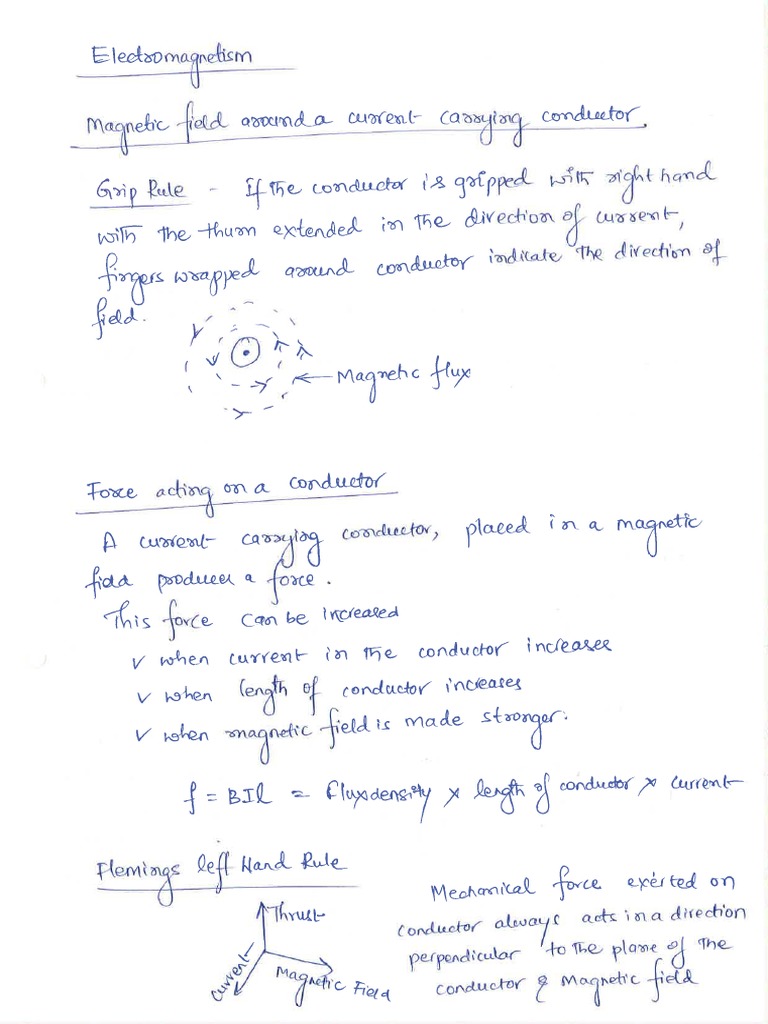 Electromagnetism
Magnetic field around a current carrying conductor.
Grip Rule - If the conductor is gripped with right hand
with the thum extended in the direction of current,
fingers wrapped around conductor indicate the direction of
field.
Magnetic flux
Force acting on a conductor
A current carrying conductor, placed in a magnetic
field produces a force.
This force can be increased
✓ when current in the conductor increases
✓ when length of conductor increases
✓ when magnetic field is made stronger.
f = BIl = Fluxdensity × length of conductor × current
Flemings left Hand Rule
Thrust
Current
Magnetic Field
Mechanical force exerted on
conductor always acts in a direction
perpendicular to the plane of the
conductor & Magnetic field